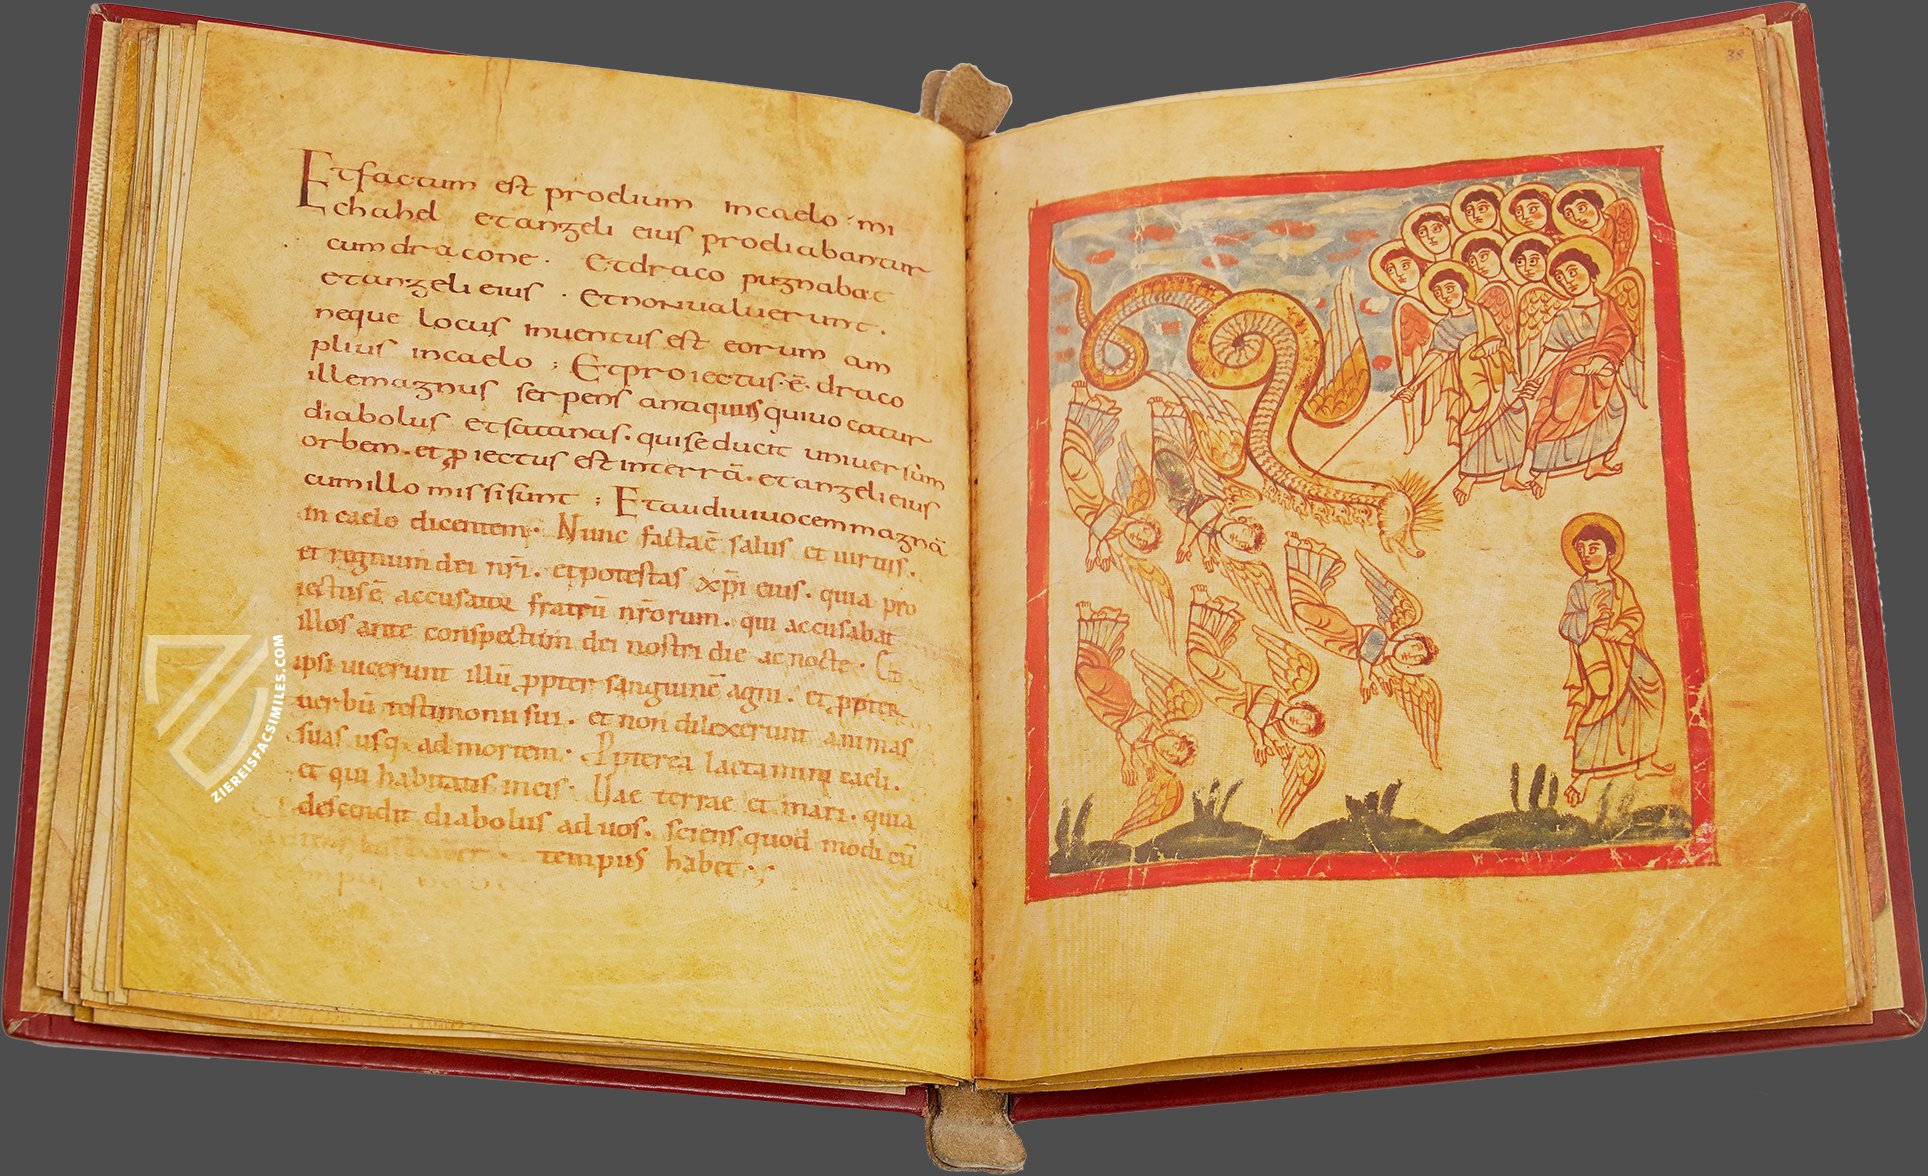 Et factum est proelium in caelo · mi
chahel et angeli eius proeliabantur
cum dracone · Et draco pugnabat
et angeli eius · Et non ualuerunt ·
neque locus inuentus est eorum am
plius in caelo ; Et proiectus · ē · draco
ille magnus serpens antiquus qui uocatur
diabolus et satanas · qui seducit uniuersum
orbem · et ꝓiectus est in terrā · et angeli eius
cum illo missi sunt ; Et audiui uocem magnā
in caelo dicentem · Nunc facta ē salus et uirtus ·
et regnum dei nr̄i · et potestas xp̄i eius · quia pro
iectus ē accusator fratrū nr̄orum · qui accusabat
illos ante conspectum dei nostri die ac nocte ·
ipsi uicerunt illū ꝓpter sanguinē agni · et ꝓpter
uerbū testimonii sui · et non dilexerunt animas
suas usq; ad mortem · Ꝓpterea laetamini caeli ·
et qui habitatis in eis · Uae terrae et mari · quia
descendit diabolus ad uos · sciens quod modicū
tempus habet ·
38
ZIEREISFACSIMILES.COM